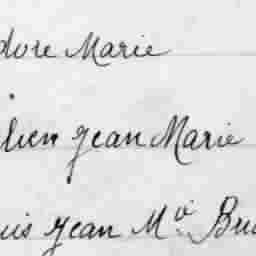 dore Marie
lien Jean Marie
uis Jean M.ie Bru